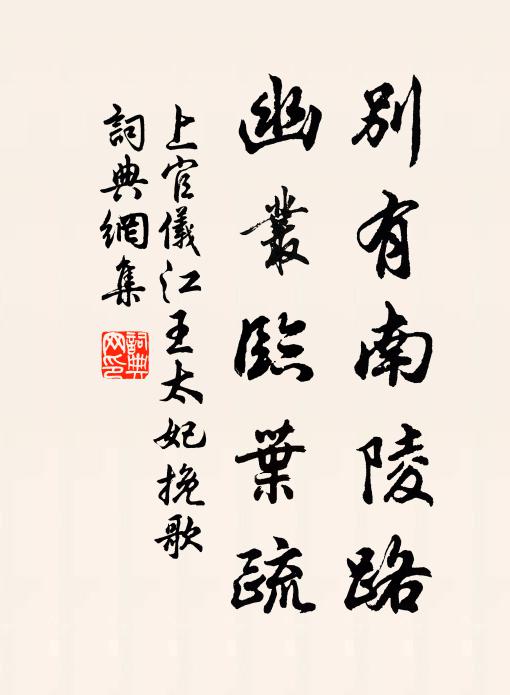 別有南陵路
幽叢臨葉疏
上官儀江王太妃挽歌
詞典網集
詞典网印